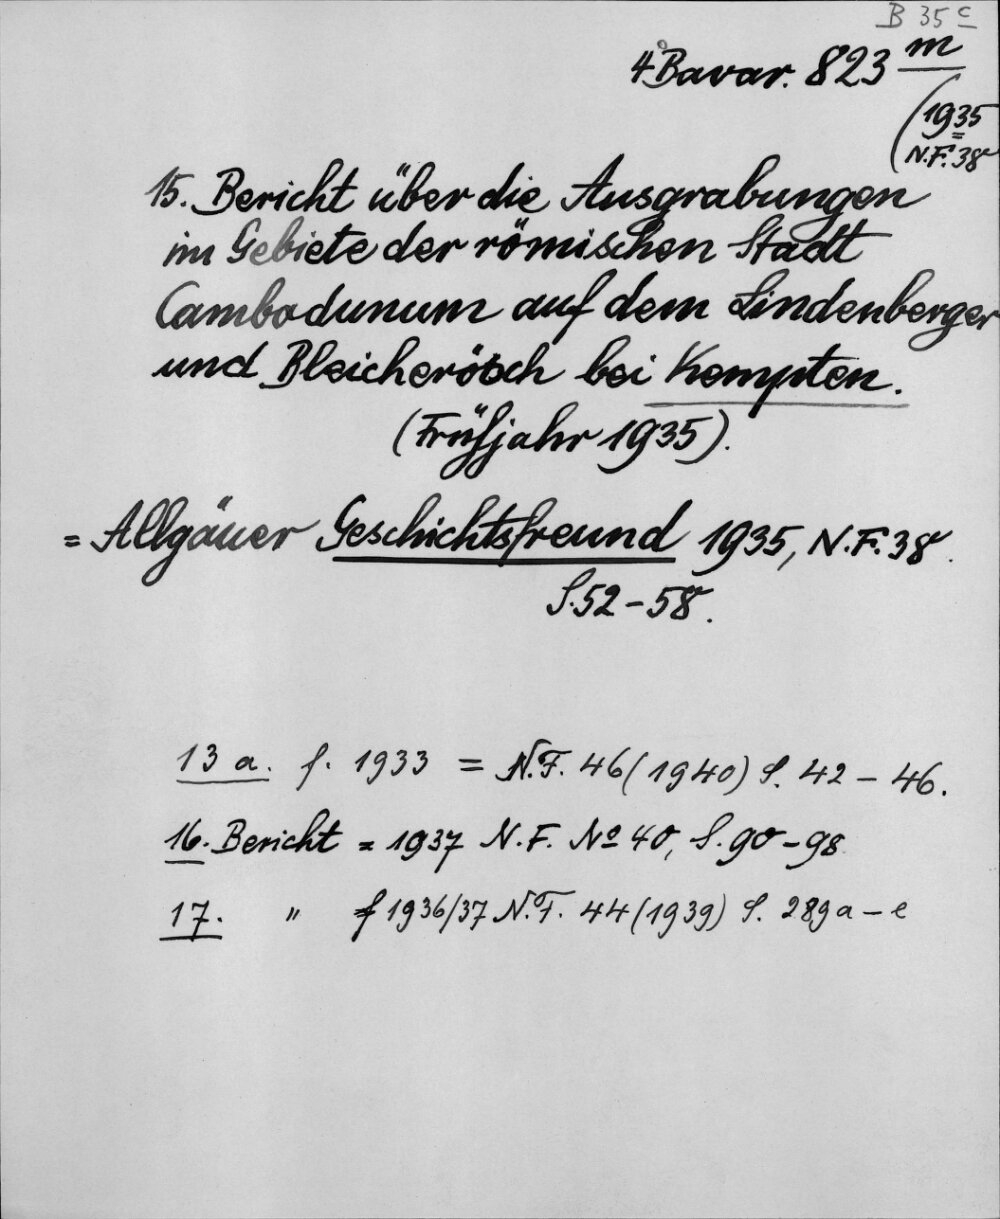 B 35 c
4° Bavar. 823 m
(1935
N.F. 38
15. Bericht über die Ausgrabungen
im Gebiete der römischen Stadt
Cambodunum auf dem Lindenberger
und Bleicherösch bei Kempten.
(Frühjahr 1935).
= Allgäuer Geschichtsfreund 1935, N.F. 38.
S. 52 - 58.
13 a. f. 1933 = N.F. 46 (1940) S. 42 - 46.
16. Bericht = 1937 N.F. No 40, S. 90 - 98
17. " f 1936/37 N.F. 44 (1939) S. 289 a - e